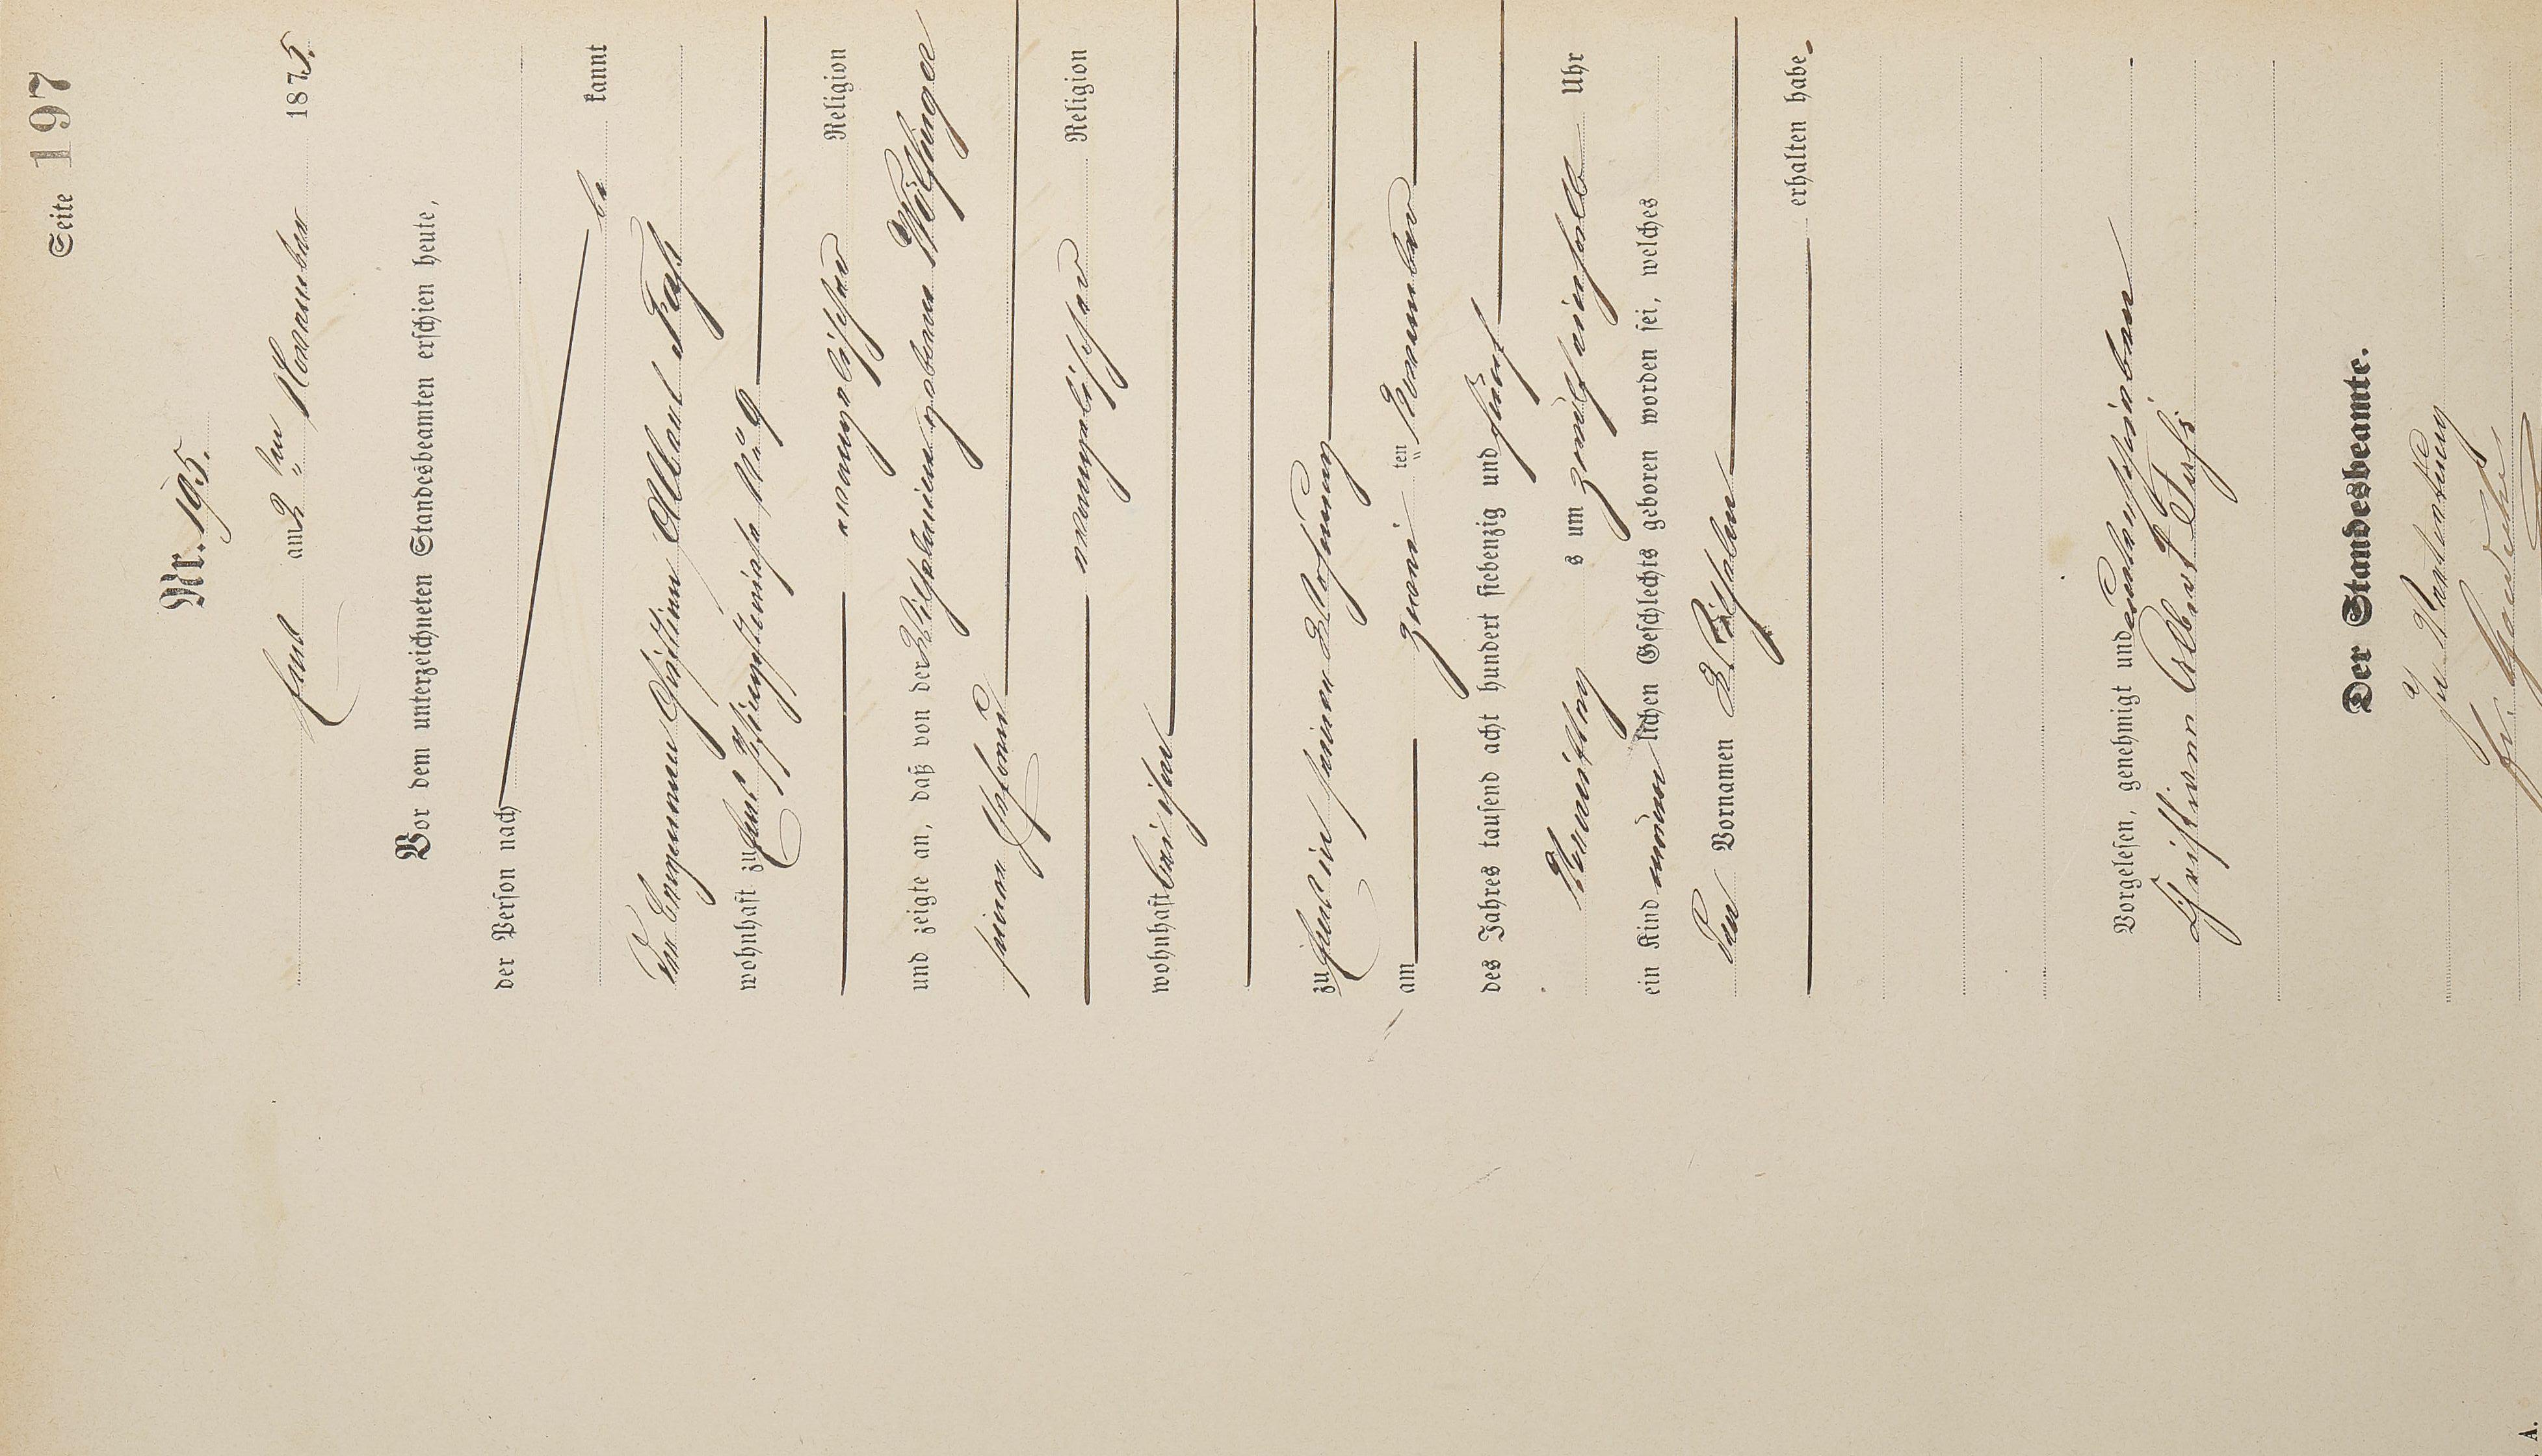 Seite 197
Nr. 195.
am 2ten November 1875.
Vor dem unterzeichneten Standesbeamten erschien heute,
der Person nach
be kannt
Der Christian Albert Faß
wohnhaft zu No 9
evangelischer Religion
und zeigte an, daß von der Wilhelmine gebornen
seiner Ehefrau
evangelischer Religion
wohnhaft bei ihm
zu in seiner Wohnung
am zwei ten November
des Jahres tausend acht hundert siebenzig und fünf
Vormittags um zwölfeinhalb Uhr
ein Kind männlichen Geschlechts geboren worden sei, welches
den Vornamen Wilhelm
erhalten habe.
Vorgelesen, genehmigt und unterschrieben
Christian Albert
Der Standesbeamte.
In Vertretung
A.